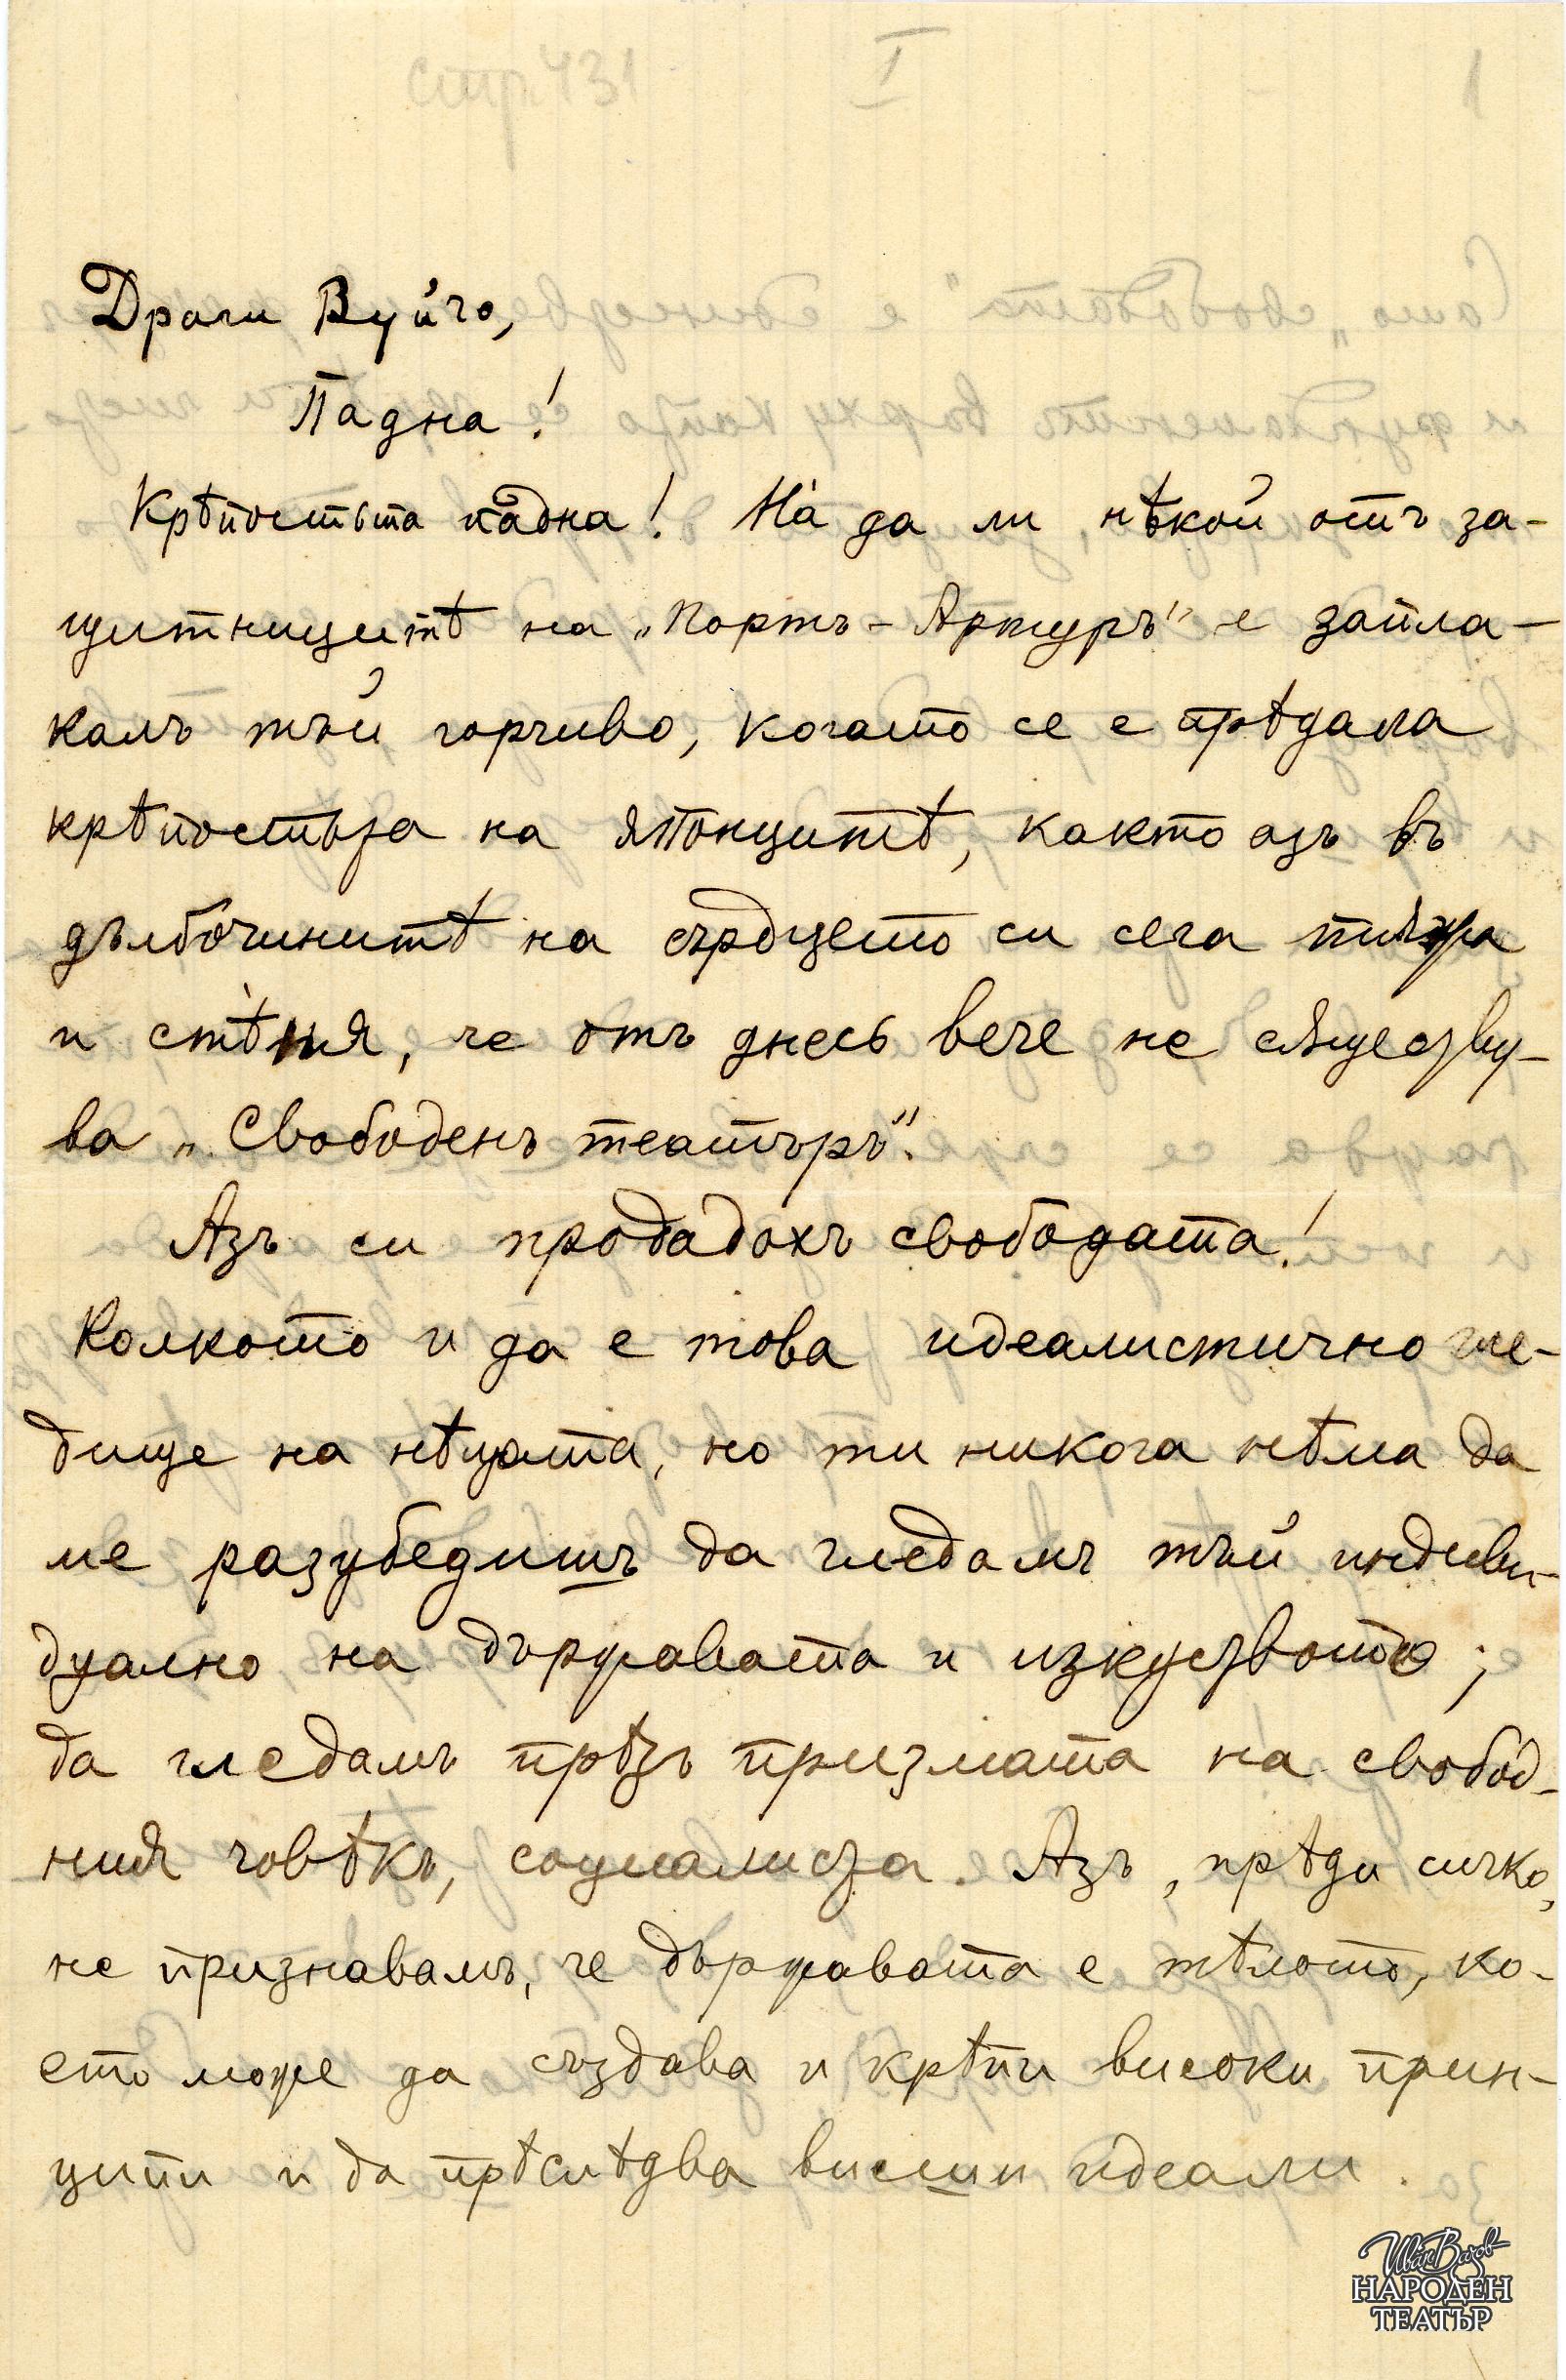 стр 431 I 1
Драги Вуйчо,
Падна!
Крѣпостьта падна! На да ли нѣкой отъ за-
щитницитѣ на „Портъ-Артуръ" е запла-
калъ тъй горчиво, когато се е прѣдала
крѣпостьта на японцитѣ, както азъ въ
дълбочинитѣ на сърдцето си сега
и стѣня, че отъ днесь вече не сѫществу-
ва „Свободенъ театъръ".
Азъ си продадохъ свободата!
Колкото и да е това идеалистично гле-
дище на нѣщата, но ти никога нѣма да
ме разубедишъ да гледамъ тъй индиви-
дуално на държавата и изкуството;
да гледамъ прѣзъ призмата на свобод-
ния човѣкъ, социалиста. Азъ, прѣди сичко,
не признавамъ, че държавата е тѣлото, ко-
ето може да създава и крѣпи високи прин-
ципи и да прѣслѣдва висши идеали.
Иван Вазов
НАРОДЕН
ТЕАТЪР